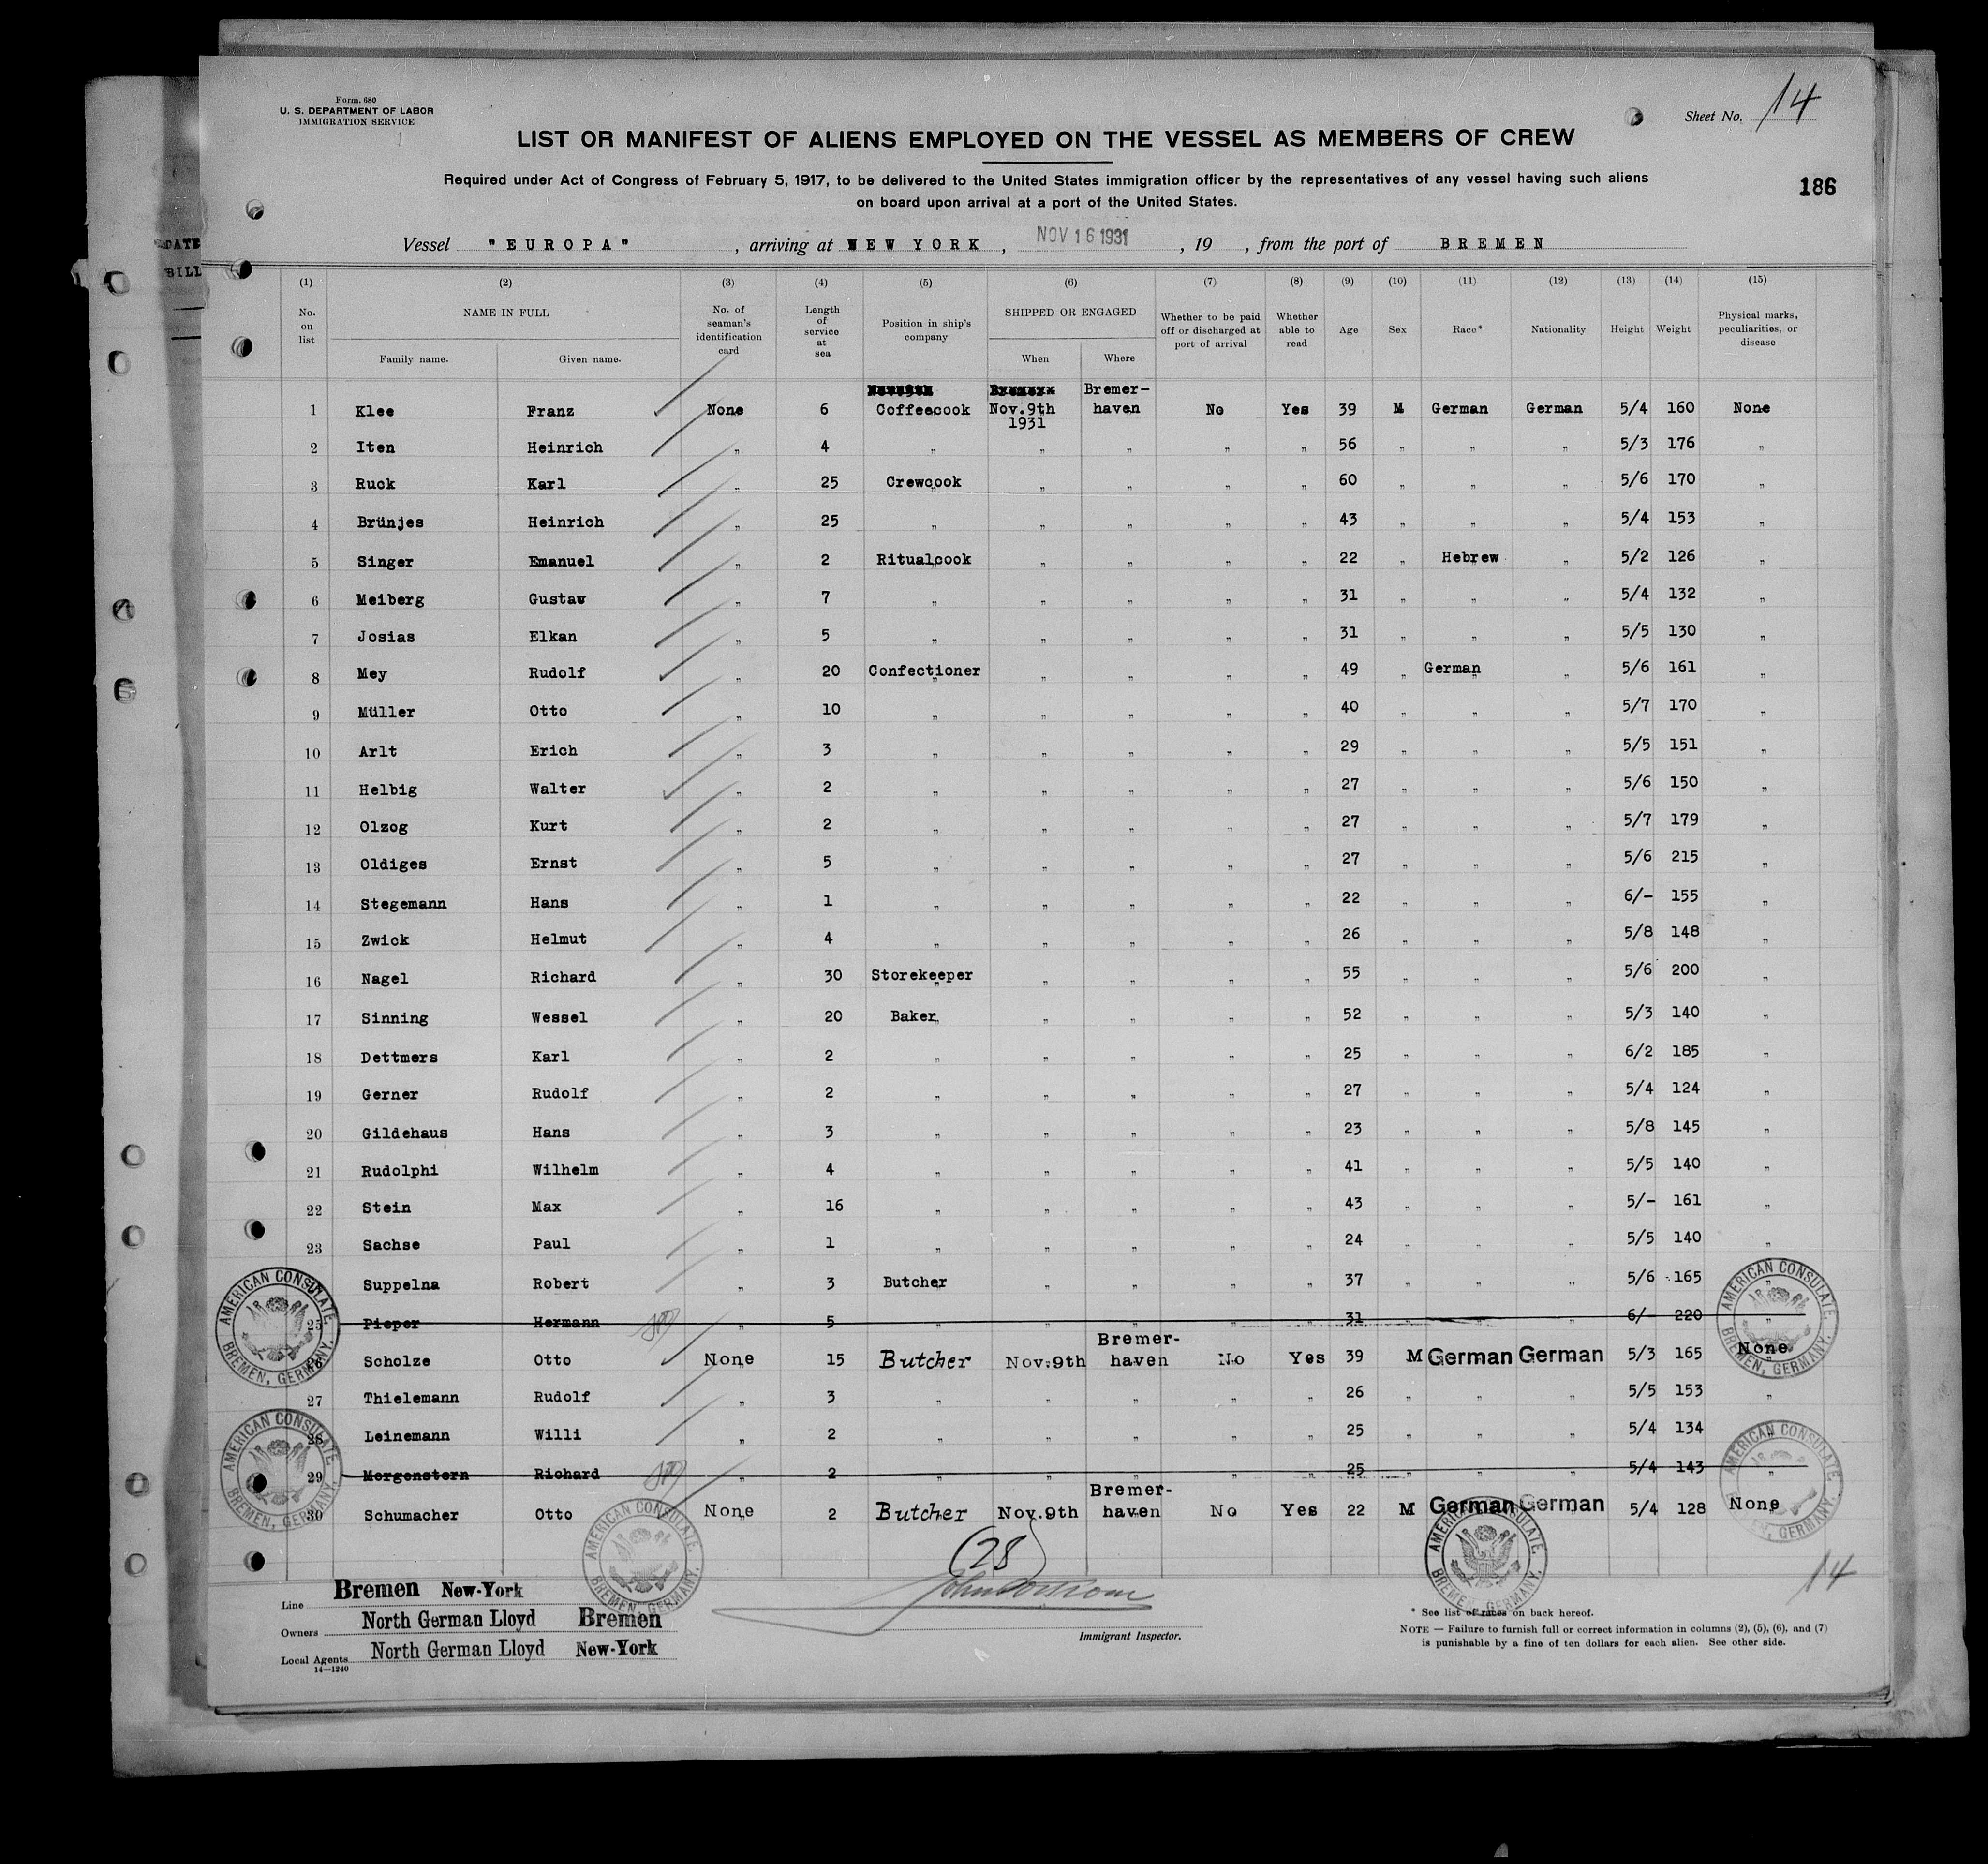 Form. 680
U. S. DEPARTMENT OF LABOR
IMMIGRATION SERVICE
Sheet No. 14
LIST OR MANIFEST OF ALIENS EMPLOYED ON THE VESSEL AS MEMBERS OF CREW
Required under Act of Congress of February 5, 1917, to be delivered to the United States immigration officer by the representatives of any vessel having such aliens
on board upon arrival at a port of the United States.
186
DATE
BILL
Vessel "EUROPA", arriving at NEW YORK, NOV 16 1931, 19 , from the port of BREMEN
(1) (2) (3) (4) (5) (6) (7) (8) (9) (10) (11) (12) (13) (14) (15)
No. on list NAME IN FULL Family name. Given name. No. of seaman's identification card Length of service at sea Position in ship's company SHIPPED OR ENGAGED When Where Whether to be paid off or discharged at port of arrival Whether able to read Age Sex Race* Nationality Height Weight Physical marks, peculiarities, or disease
1 Klee Franz None 6 Coffeecook Nov.9th 1931 Bremer-haven No Yes 39 M German German 5/4 160 None
2 Iten Heinrich " 4 " " " " " 56 " " " 5/3 176 "
3 Ruck Karl " 25 Crewcook " " " " 60 " " " 5/6 170 "
4 Brünjes Heinrich " 25 " " " " " 43 " " " 5/4 153 "
5 Singer Emanuel " 2 Ritualcook " " " " 22 " Hebrew " 5/2 126 "
6 Meiberg Gustav " 7 " " " " " 31 " " " 5/4 132 "
7 Josias Elkan " 5 " " " " " 31 " " " 5/5 130 "
8 Mey Rudolf " 20 Confectioner " " " " 49 " German " 5/6 161 "
9 Müller Otto " 10 " " " " " 40 " " " 5/7 170 "
10 Arlt Erich " 3 " " " " " 29 " " " 5/5 151 "
11 Helbig Walter " 2 " " " " " 27 " " " 5/6 150 "
12 Olzog Kurt " 2 " " " " " 27 " " " 5/7 179 "
13 Oldiges Ernst " 5 " " " " " 27 " " " 5/6 215 "
14 Stegemann Hans " 1 " " " " " 22 " " " 6/- 155 "
15 Zwick Helmut " 4 " " " " " 26 " " " 5/8 148 "
16 Nagel Richard " 30 Storekeeper " " " " 55 " " " 5/6 200 "
17 Sinning Wessel " 20 Baker " " " " 52 " " " 5/3 140 "
18 Dettmers Karl " 2 " " " " " 25 " " " 6/2 185 "
19 Gerner Rudolf " 2 " " " " " 27 " " " 5/4 124 "
20 Gildehaus Hans " 3 " " " " " 23 " " " 5/8 145 "
21 Rudolphi Wilhelm " 4 " " " " " 41 " " " 5/5 140 "
22 Stein Max " 16 " " " " " 43 " " " 5/- 161 "
23 Sachse Paul " 1 " " " " " 24 " " " 5/5 140 "
Suppelna Robert " 3 Butcher " " " " 37 " " " 5/6 165 "
25 Pieper Hermann " 5 " " " " " 31 " " " 6/- 220 "
Scholze Otto None 15 Butcher Nov.9th Bremer-haven No Yes 39 M German German 5/3 165 None
27 Thielemann Rudolf " 3 " " " " " 26 " " " 5/5 153 "
28 Leinemann Willi " 2 " " " " " 25 " " " 5/4 134 "
29 Morgenstern Richard " 2 " " " " " 25 " " " 5/4 143 "
30 Schumacher Otto None 2 Butcher Nov.9th Bremer-haven No Yes 22 M German German 5/4 128 None
AMERICAN CONSULATE. BREMEN, GERMANY.
AMERICAN CONSULATE. BREMEN, GERMANY.
AMERICAN CONSULATE. BREMEN, GERMANY.
AMERICAN CONSULATE. BREMEN, GERMANY.
AMERICAN CONSULATE. BREMEN, GERMANY.
AMERICAN CONSULATE. BREMEN, GERMANY.
(28)
14
Line Bremen New-York
Owners North German Lloyd Bremen
Local Agents North German Lloyd New-York
14—1240
Immigrant Inspector.
* See list of races on back hereof.
NOTE — Failure to furnish full or correct information in columns (2), (5), (6), and (7)
is punishable by a fine of ten dollars for each alien. See other side.